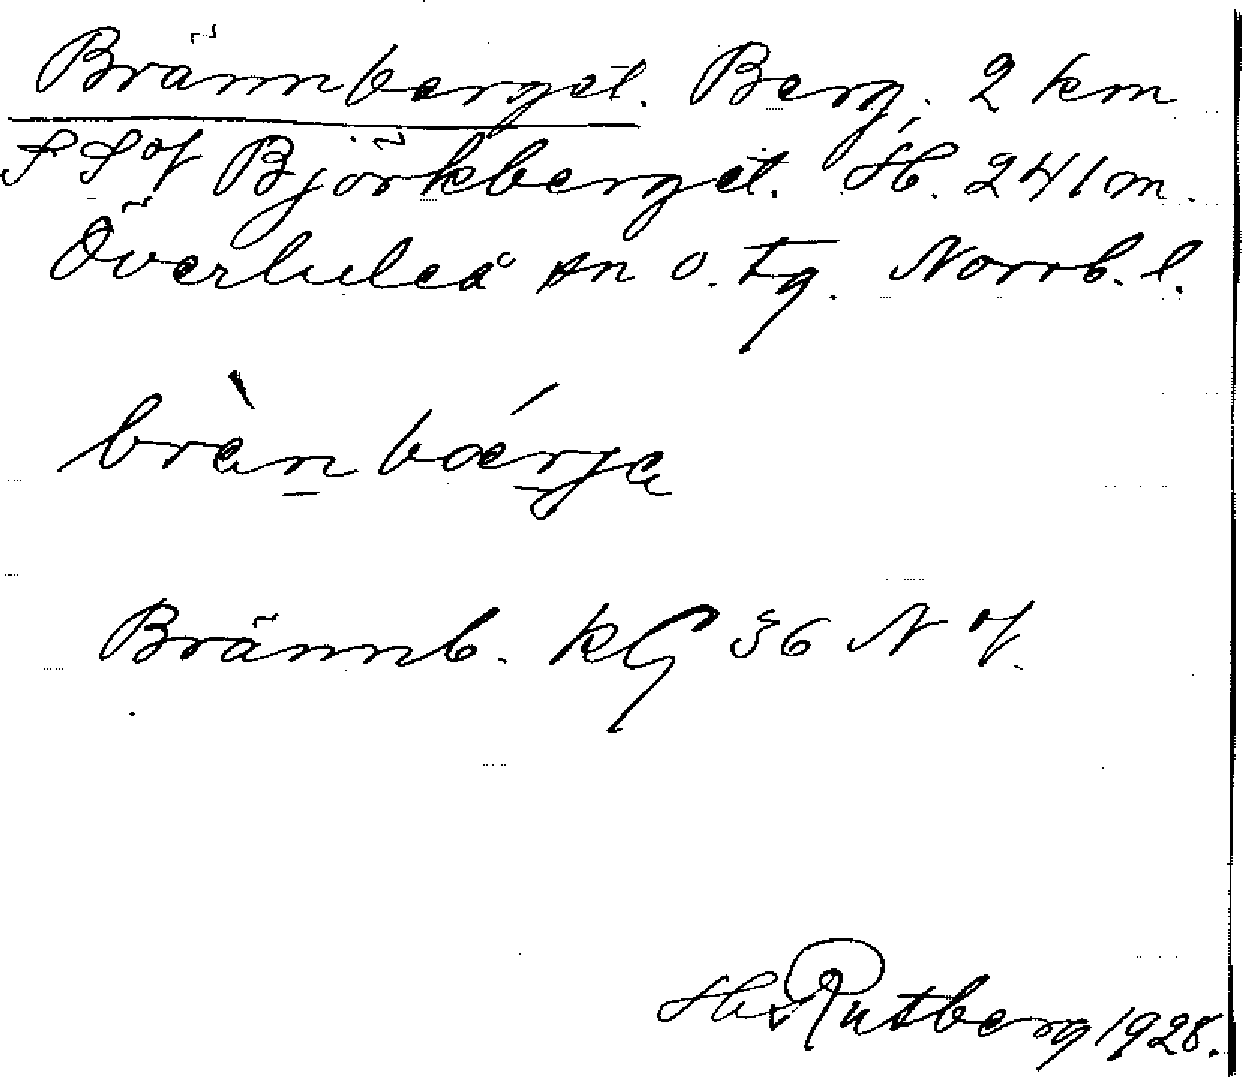 Brännberget. Berg. 2 km
S S of Björkberget. H. 241 m.
Överluleå sn o. tg. Norrb. l.
brànbǽrja
Brännb. kG 36 N of.
Hj Rutberg 1928.